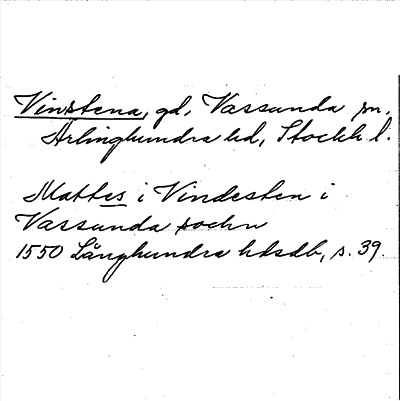 Vinstena, gd, Vassunda sn,
Ärlinghundra hd, Stockh. l.
Mattes i Vindesten i
Vassunda sochn
1550 Långhundra hdsdb, s. 39.